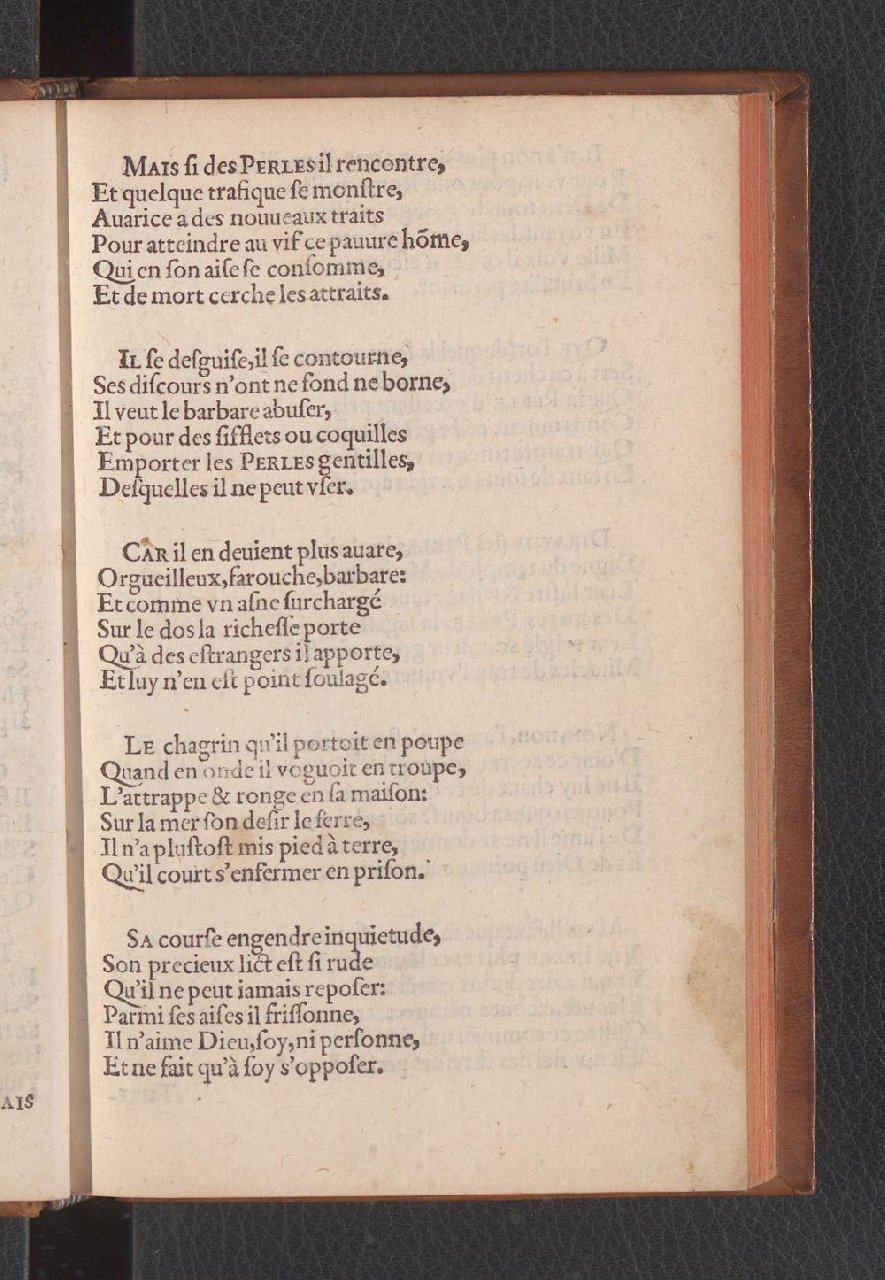 MAIS ſi des PERLES il rencontre,
Et quelque trafique ſe monſtre,
Auarice a des nouueaux traits
Pour atteindre au vif ce pauure hõme,
Qui en ſon aiſe ſe conſomme,
Et de mort cerche les attraits.
IL ſe deſguiſe, il ſe contourne,
Ses diſcours n'ont ne fond ne borne,
Il veut le barbare abuſer,
Et pour des ſifflets ou coquilles
Emporter les PERLES gentilles,
Deſquelles il ne peut vſer.
CAR il en deuient plus auare,
Orgueilleux, farouche, barbare:
Et comme vn aſne ſurchargé
Sur le dos la richeſſe porte
Qu'à des eſtrangers il apporte,
Et luy n'en eſt point ſoulagé.
LE chagrin qu'il portoit en poupe
Quand en onde il voguoit en troupe,
L'attrappe & ronge en ſa maiſon:
Sur la mer ſon deſir le ferre,
Il n'a pluſtoſt mis pied à terre,
Qu'il court s'enfermer en priſon.
SA courſe engendre inquietude,
Son precieux lict eſt ſi rude
Qu'il ne peut iamais repoſer:
Parmi ſes aiſes il friſſonne,
Il n'aime Dieu, ſoy, ni perſonne,
Et ne fait qu'à ſoy s'oppoſer.
AIS